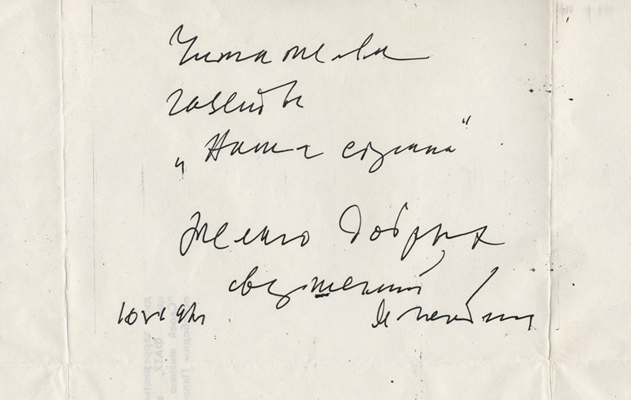 Читателям
газеты
„Наша страна“
Желаю добрых
свершений